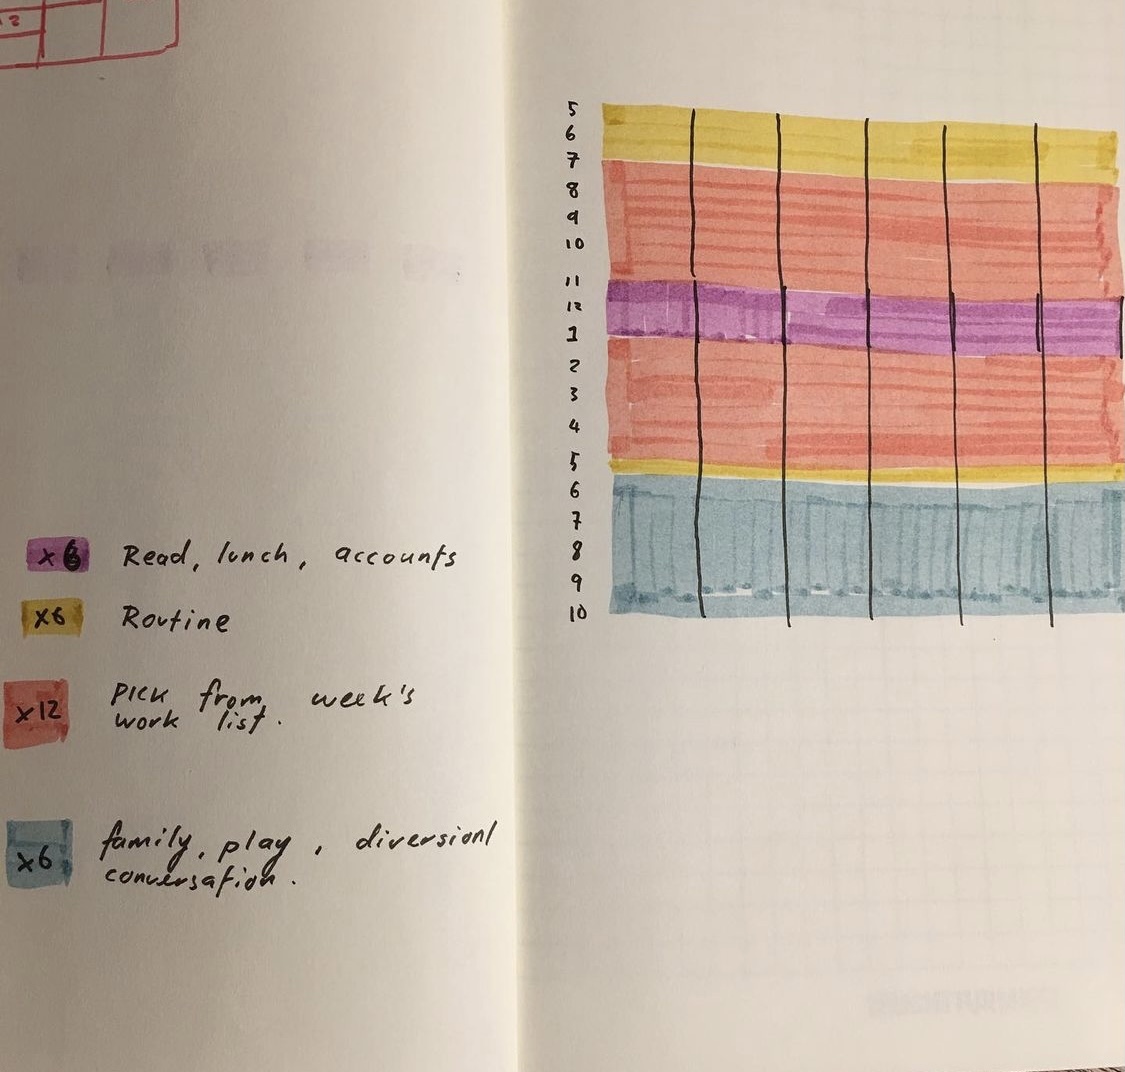 2
x6 Read, lunch, accounts
x6 Routine
x12 PICK from week's
work list.
x6 family, play, diversion/
conversation.
5
6
7
8
9
10
11
12
1
2
3
4
5
6
7
8
9
10